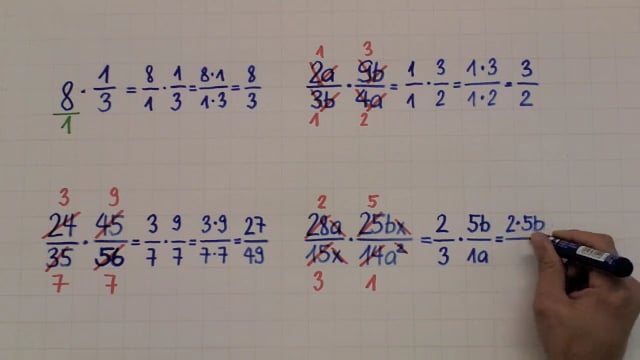 8/1 · 1/3 = 8/1 · 1/3 = 8·1/1·3 = 8/3
1 3
2a/3b · 9b/4a = 1/1 · 3/2 = 1·3/1·2 = 3/2
1 2
3 9
24/35 · 45/56 = 3/7 · 9/7 = 3·9/7·7 = 27/49
7 7
2 5
28a/15x · 25bx/14a² = 2/3 · 5b/1a = 2·5b
3 1